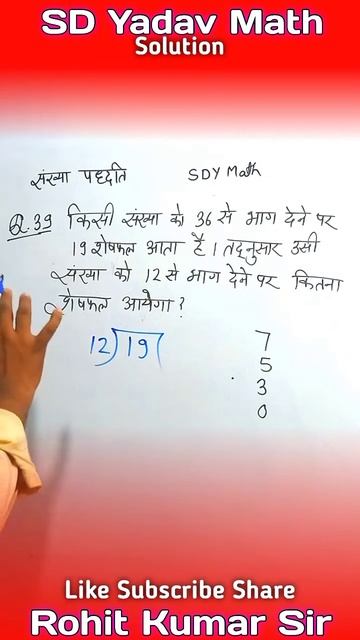 SD Yadav Math
Solution
संख्या पद्दति SDY Math
Q.39 किसी संख्या को 36 से भाग देने पर
19 शेषफल आता है । तद्नुसार उसी
संख्या को 12 से भाग देने पर कितना
शेषफल आयेगा ?
12)19(
7
5
3
0
Like Subscribe Share
Rohit Kumar Sir